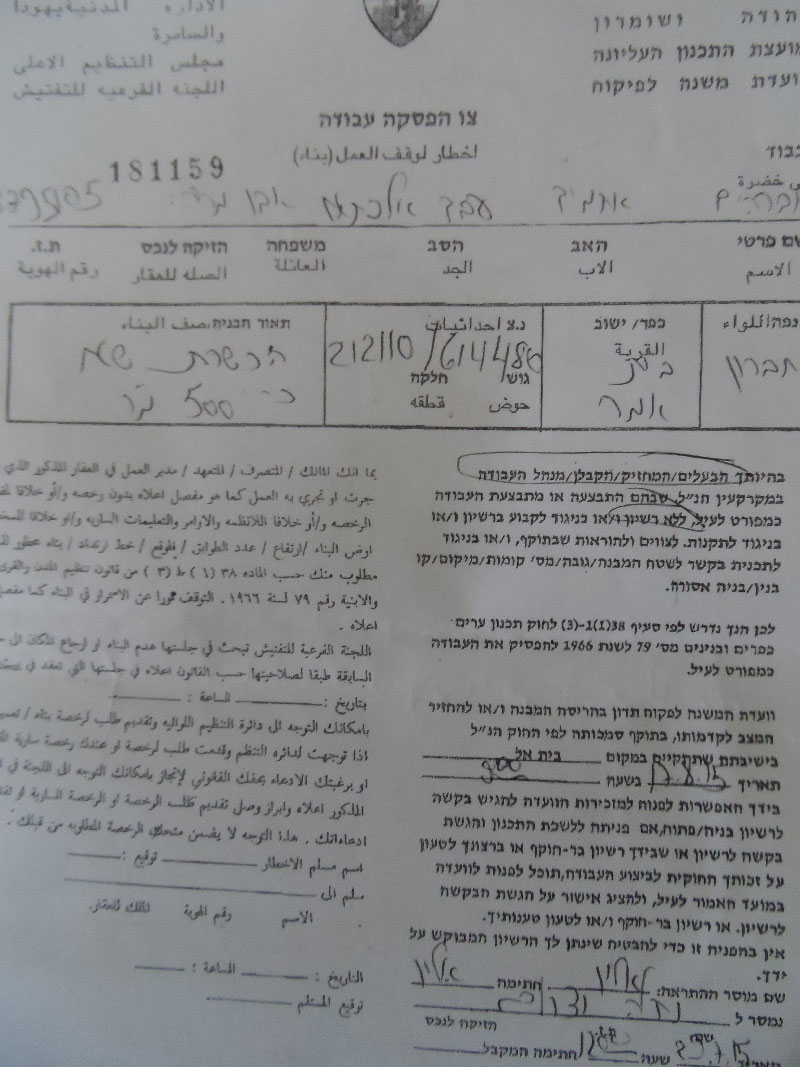 הודה ושומרון
מועצת התכנון העליונה
ועדת משנה לפיקוח
الاداره المدنية يهودا
والسامرة
مجلس التنظيم الاعلى
اللجنه الفرعيه للتفتيش
צו הפסקה עבודה
اخطار لوقف العمل (بناء)
181159
חضרة
שם פרטי האב הסב משפחה הזיקה לנכס ת.ז.
الاسم الاب الجد العائلة الصله للعقار رقم الهوية
נפה/اللواء
חברון
כפר/ ישוב
القرية
בית
אמר
נ.צ احداثيات
212110/614486
גוש/ חלקה
حوض قطقه
תאור הבניה، صف البناء
הכשרת שטח
כ- 500 מ"ר
בהיותך הבעלים/המחזיק/הקבלן/מנהל העבודה
במקרקעין הנ"ל, שבהם התבצעה או מתבצעת העבודה
כמפורט לעיל, ללא רשיון ו/או בניגוד לקבוע ברשיון ו/או
בניגוד לתקנות. לצווים ולהוראות שבתוקף, ו/או בניגוד
לתכנית בקשר לשטח המבנה/גובה/מס' קומות/מיקום/קו
בנין/בניה אסורה.
לכן הנך נדרש לפי סעיף 38(1)-(3) לחוק תכנון ערים
כפרים ובנינים מס' 79 לשנת 1966 להפסיק את העבודה
כמפורט לעיל.
וועדת המשנה לפקוח תדון בהריסה המבנה ו/או להחזיר
המצב לקדמותו, בתוקף סמכותה לפי החוק הנ"ל
בישיבתם שתתקיים במקום בית אל
תאריך בשעה
בידך האפשרות לפנות למזכירות הוועדה להגיש בקשה
לרשיון בניה/פתוח, אם פניתה ללשכת התכנון והגשת
בקשה לרשיון או שבידך רשיון בר-תוקף או ברצונך לטעון
על זכותך החוקית לביצוע העבודה, תוכל לפנות לוועדה
במועד האמור לעיל, ולהציג אישור על הגשת הבקשה
לרשיון. או רשיון בר-תוקף ו/או לטעון טענותיך.
אין בהפניה זו כדי להבטיח שינתן לך הרשיון המבוקש על
ידך.
שם מוסר ההתראה: חתימה
נמסר ל
הזיקה לנכס
שעה חתימה המקבל
بما انك المالك / المتصرف / المتعهد / مدير العمل في العقار المذكور الذي
جرت او تجري به العمل كما هو مفصل اعلاه بدون رخصه و/أو خلافا
الرخصه و/أو خلافا للانظمه والاوامر والتعليمات الساريه و/او خلافا
ارض البناء /ارتفاع / عدد الطوابق / الموقع / خط ارتداد / بناء محظور
مطلوب منك حسب الماده ٣٨ (١) ط (٣) من قانون تنظيم المدن والقرى
والابنية رقم ٧٩ لسنة ١٩٦٦. التوقف فورا عن الاستمرار في البناء كما
اعلاه .
اللجنة الفرعية للتفتيش تبحث في جلستها هدم البناء او ارجاع المكان الى
السابقة طبقا لصلاحيتها حسب القانون اعلاه في جلستها التي تعقد في
بتاريخ : الساعة :
بامكانك التوجه الى دائرة التنظيم اللوائيه وتقديم طلب لرخصة بناء /
اذا توجهت لدائره التنظم وقدمت طلب لرخصة او عندك رخصة سارية
او برغبتك الادعاء بحقك القانوني لإنجاز بامكانك التوجه الى اللجنة في
المذكور اعلاه وابراز وصل تقديم طلب الرخصة او الرخصة السارية او
ادعاءاتك . هذا التوجه لا يضمن منحك الرخصة المطلوبه من قبلك .
اسم مسلم الاخطار توقيع :
سلم الى
الاسم رقم الهوية المالك للعقار
التاريخ : الساعة :
توقيع المستلم